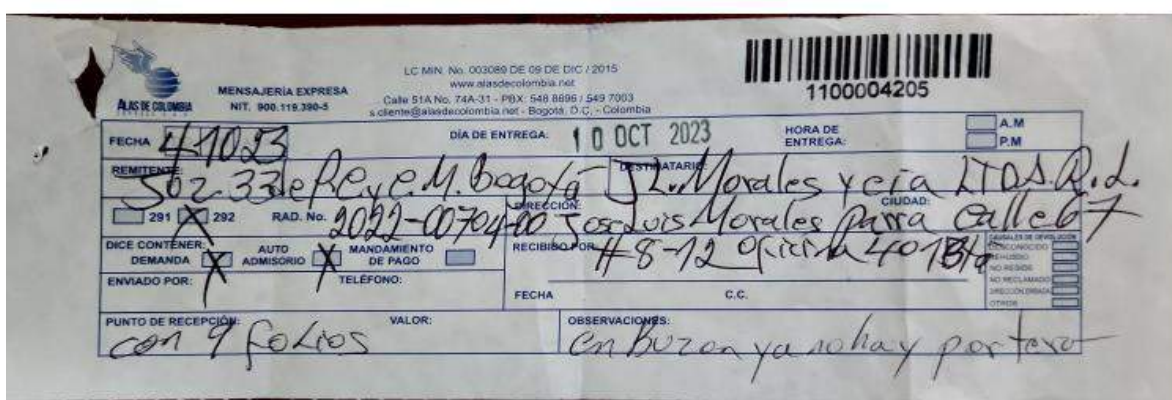 LC MIN. No. 003089 DE 09 DE DIC / 2015
www.alasdecolombia.net
Calle 51A No. 74A-31 - PBX: 548 8696 / 549 7003
s.cliente@alasdecolombia.net - Bogotá, D.C. - Colombia
ALAS DE COLOMBIA
MENSAJERÍA EXPRESA
NIT. 900.119.390-5
1100004205
FECHA 4-10-23
DÍA DE ENTREGA: 10 OCT 2023
HORA DE ENTREGA:
A.M
P.M
REMITENTE: Juz. 33 de Pe. y C. M. Bogotá
DESTINATARIO: J L. Morales y cia LTDA. R. L.
291 X 292 RAD. No. 2022-00704-00
DIRECCIÓN: Jose Luis Morales Parra Calle 67
CIUDAD:
DICE CONTENER: DEMANDA X AUTO ADMISORIO X MANDAMIENTO DE PAGO
RECIBISO POR: # 8-12 Oficina 401 Bta
CAUSALES DE DEVOLUCIÓN
DESCONOCIDO
REHUSADO
NO RESIDE
NO RECLAMADO
DIRECCIÓN ERRADA
OTROS
ENVIADO POR:
TELÉFONO:
FECHA
C.C.
PUNTO DE RECEPCIÓN:
VALOR:
con 9 folios
OBSERVACIONES:
en Buzon ya no hay portero